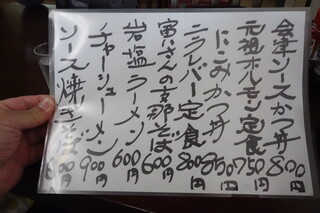 会津ソースかつ丼 800円
元祖ホルモン定食 750円
にこみかつ丼 850円
ニラレバー定食 800円
寅さんの支那そば 600円
岩塩ラーメン 600円
チャーシューメン 900円
ソース焼きそば 600円